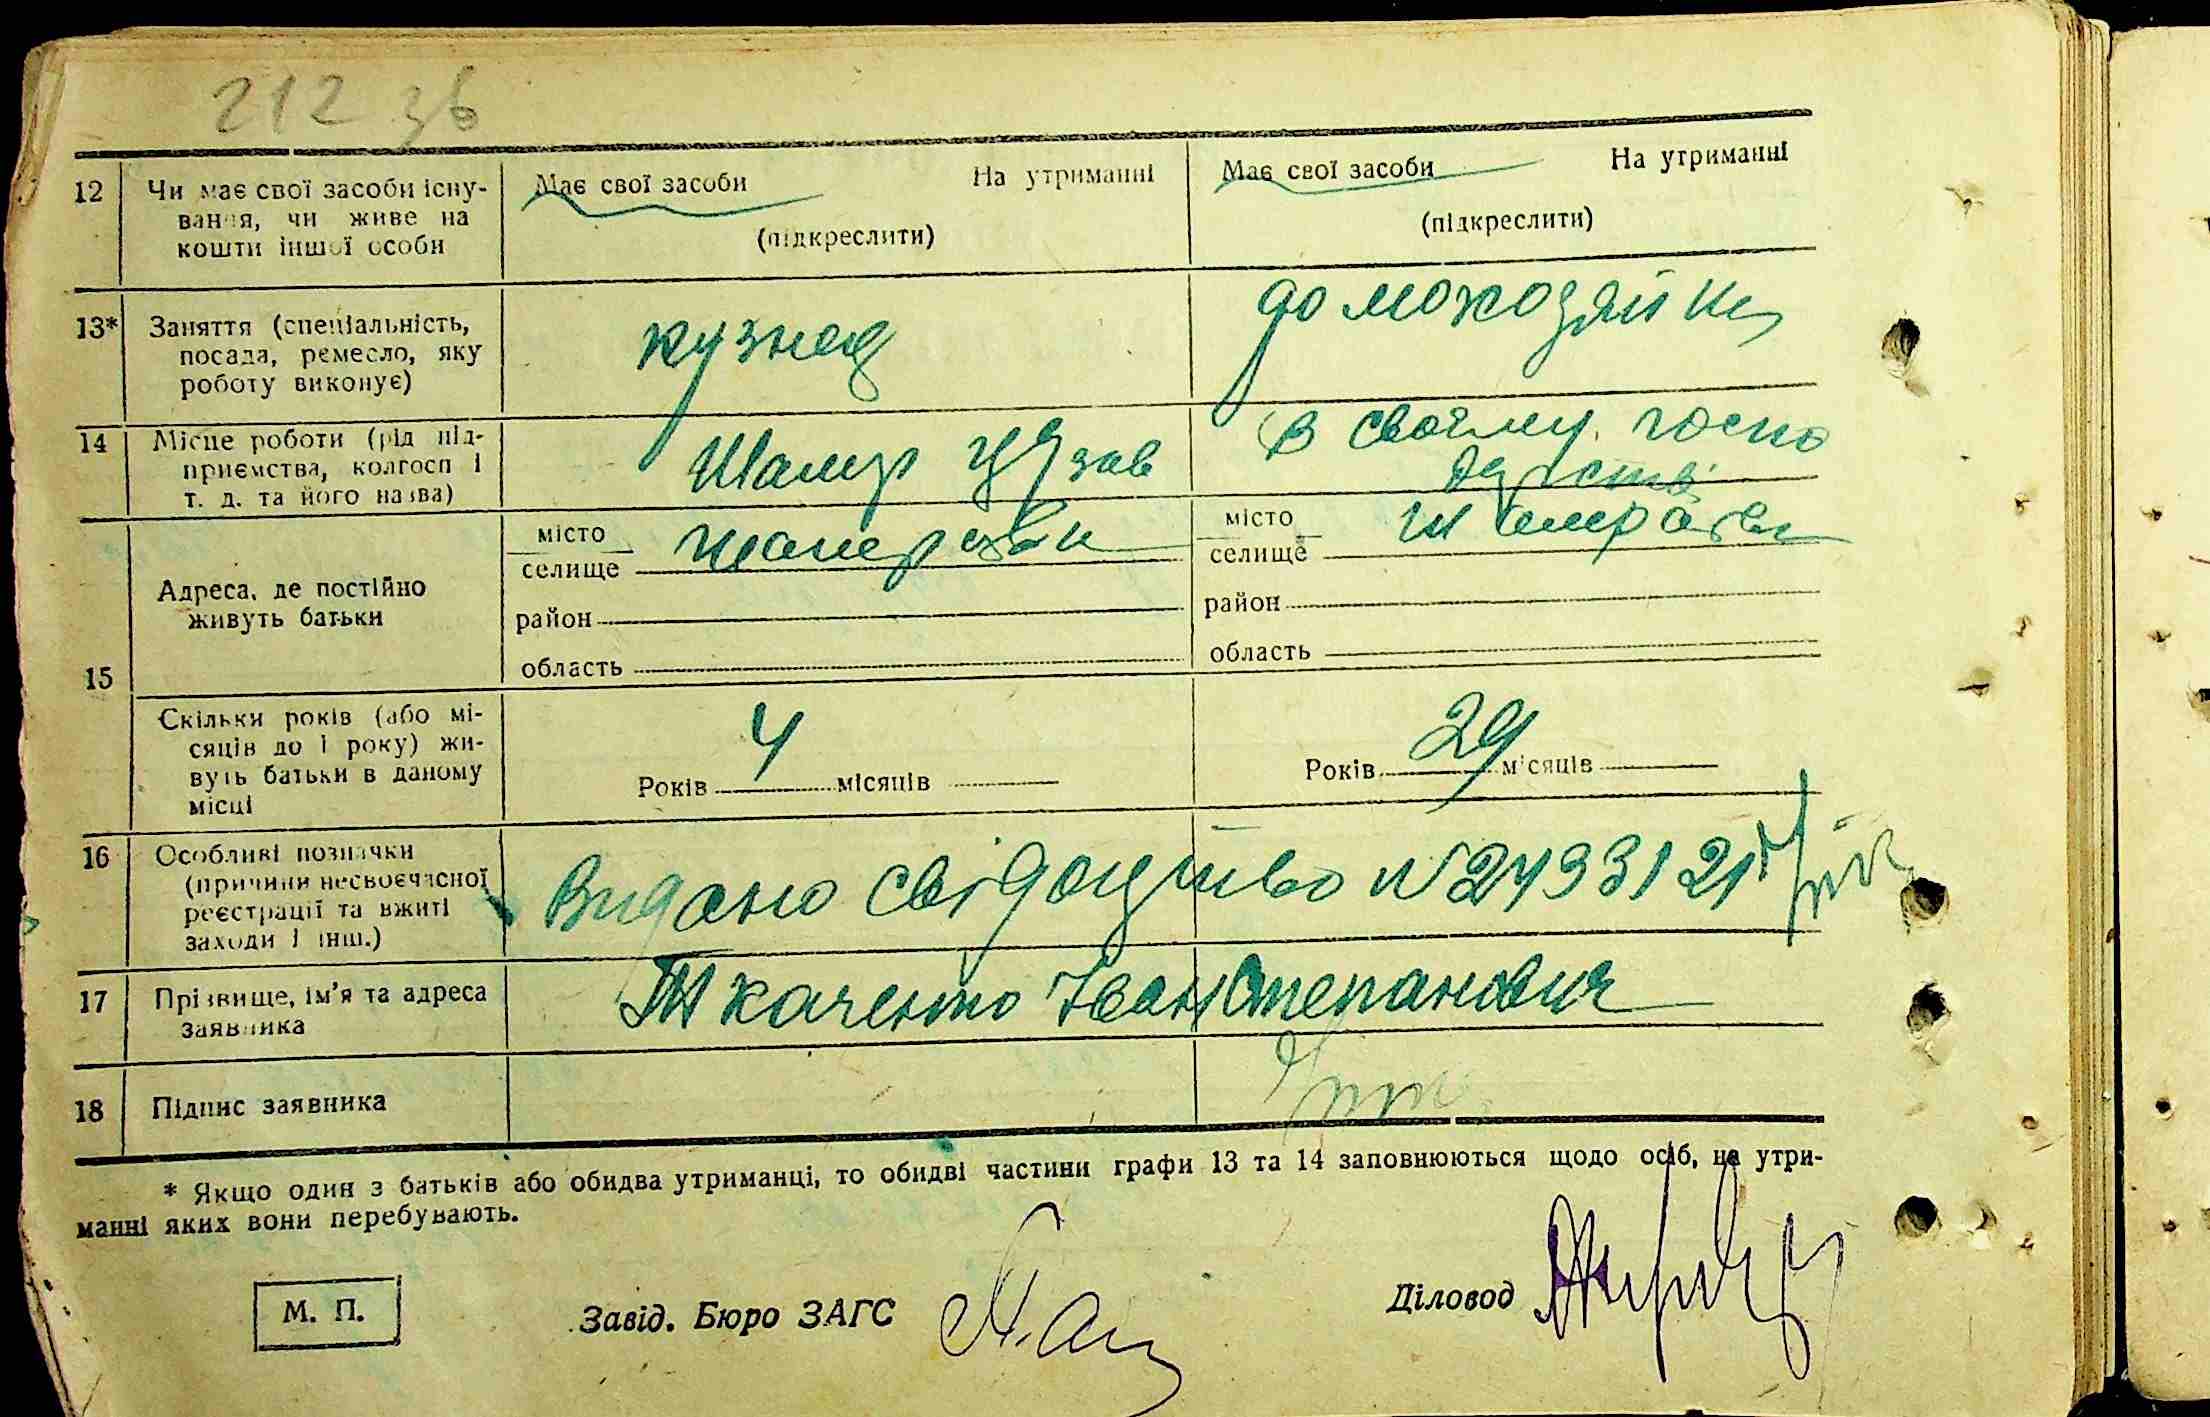 212 зв
12 Чи має свої засоби існу-
вання, чи живе на
кошти іншої особи
Має свої засоби На утриманні
(підкреслити)
Має свої засоби На утриманні
(підкреслити)
13* Заняття (спеціальність,
посада, ремесло, яку
роботу виконує)
кузнец
домохозяйка
14 Місце роботи (рід під-
приємства, колгосп і
т. д. та його назва)
зав
в своєму госпо
дарстві
15 Адреса, де постійно
живуть батьки
місто
селище
район
область
місто
селище
район
область
Скільки років (або мі-
сяців до 1 року) жи-
вуть батьки в даному
місці
Років 4 місяців
Років 29 місяців
16 Особливі позначки
(причини несвоєчасної
реєстрації та вжиті
заходи і інш.)
Видано свідоцтво N 249312
17 Прізвище, ім'я та адреса
заявника
Ткаченко Іван Степанович
18 Підпис заявника
* Якщо один з батьків або обидва утриманці, то обидві частини графи 13 та 14 заповнюються щодо осіб, на утри-
манні яких вони перебувають.
М. П. Завід. Бюро ЗАГС Діловод